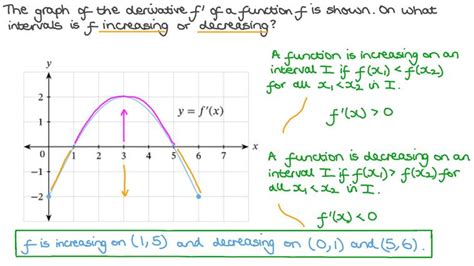 The graph of the derivative f' of a function f is shown. On what
intervals is f increasing or decreasing?
A function is increasing on an
interval I if f(x₁) < f(x₂)
for all x₁ < x₂ in I.
f'(x) > 0
A function is decreasing on an
interval I if f(x₁) > f(x₂) for
all x₁ < x₂ in I.
f'(x) < 0
y
2
1
0
−1
−2
1 2 3 4 5 6 7 x
y = f'(x)
f is increasing on (1,5) and decreasing on (0,1) and (5,6).